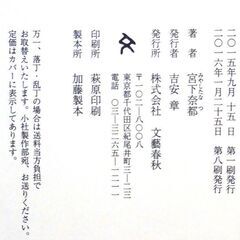 二〇一五年九月十五日 第一刷発行
二〇一六年一月二十五日 第八刷発行
著者 宮下奈都
みやしたなつ
発行者 吉安章
発行所 株式会社 文藝春秋
〒一〇二-八〇〇八
東京都千代田区紀尾井町三-二三
電話 〇三-三二六五-一二一一
印刷所 萩原印刷
製本所 加藤製本
万一、落丁・乱丁の場合は送料当方負担で
お取替えいたします。小社製作部宛、お送りください。
定価はカバーに表示してあります。